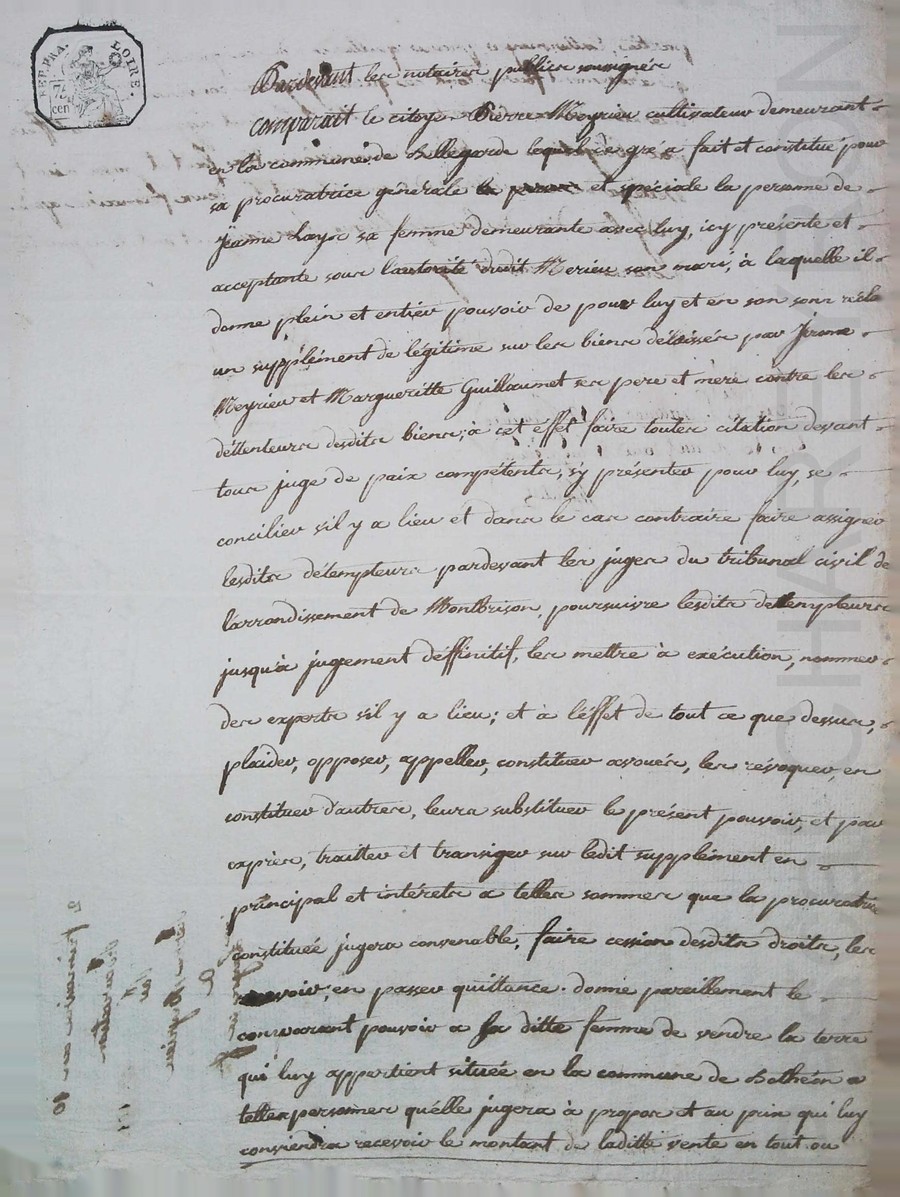 REP. FRA.
LOIRE.
75
cen
Pardevant les notaires publics soussignés
comparait le citoyen Pierre Meyrieu cultivateur demeurant
en la commune de Bellegarde lequel de gré a fait et constitué pour
sa procuratrice générale et spéciale la personne de
Jeanne Layse sa femme demeurante avec luy, icy présente et
acceptante sous l'autorité dudit Merieu son mari, à laquelle il
donne plein et entier pouvoir de pour luy et en son nom
un supplément de légitime sur les biens délaissés par Jerome
Meyrieu et Margueritte Guillaumet ses pere et mere contre les
détenteurs desdits biens; à cet effet faire toutes citation devant
tous juge de paix compétents, s'y présenter pour luy, se
concilier s'il y a lieu et dans le cas contraire faire assigner
lesdits détempteurs pardevant les juges du tribunal civil de
l'arrondissement de Montbrison, poursuivre lesdits détempteurs
jusqu'à jugement deffinitif, les mettre à exécution, nommer
des experts s'il y a lieu; et à l'effet de tout ce que dessus,
plaider, opposer, appeller, constituer avoués, les révoquer, en
constituer d'autres, leurs substituer le présent pouvoir, et par
exprès, traitter et transiger sur ledit supplément en
principal et intérets a telles sommes que la procuratrice
constituée jugera convenable, faire cession desdits droits, les
recevoir, en passer quittance. donne pareillement le
comparant pouvoir a sa ditte femme de vendre la terre
qui luy appartient située en la commune de Bothéon a
telles personnes qu'elle jugera à propos et au prix qui luy
conviendra recevoir le montant de laditte vente en tout ou